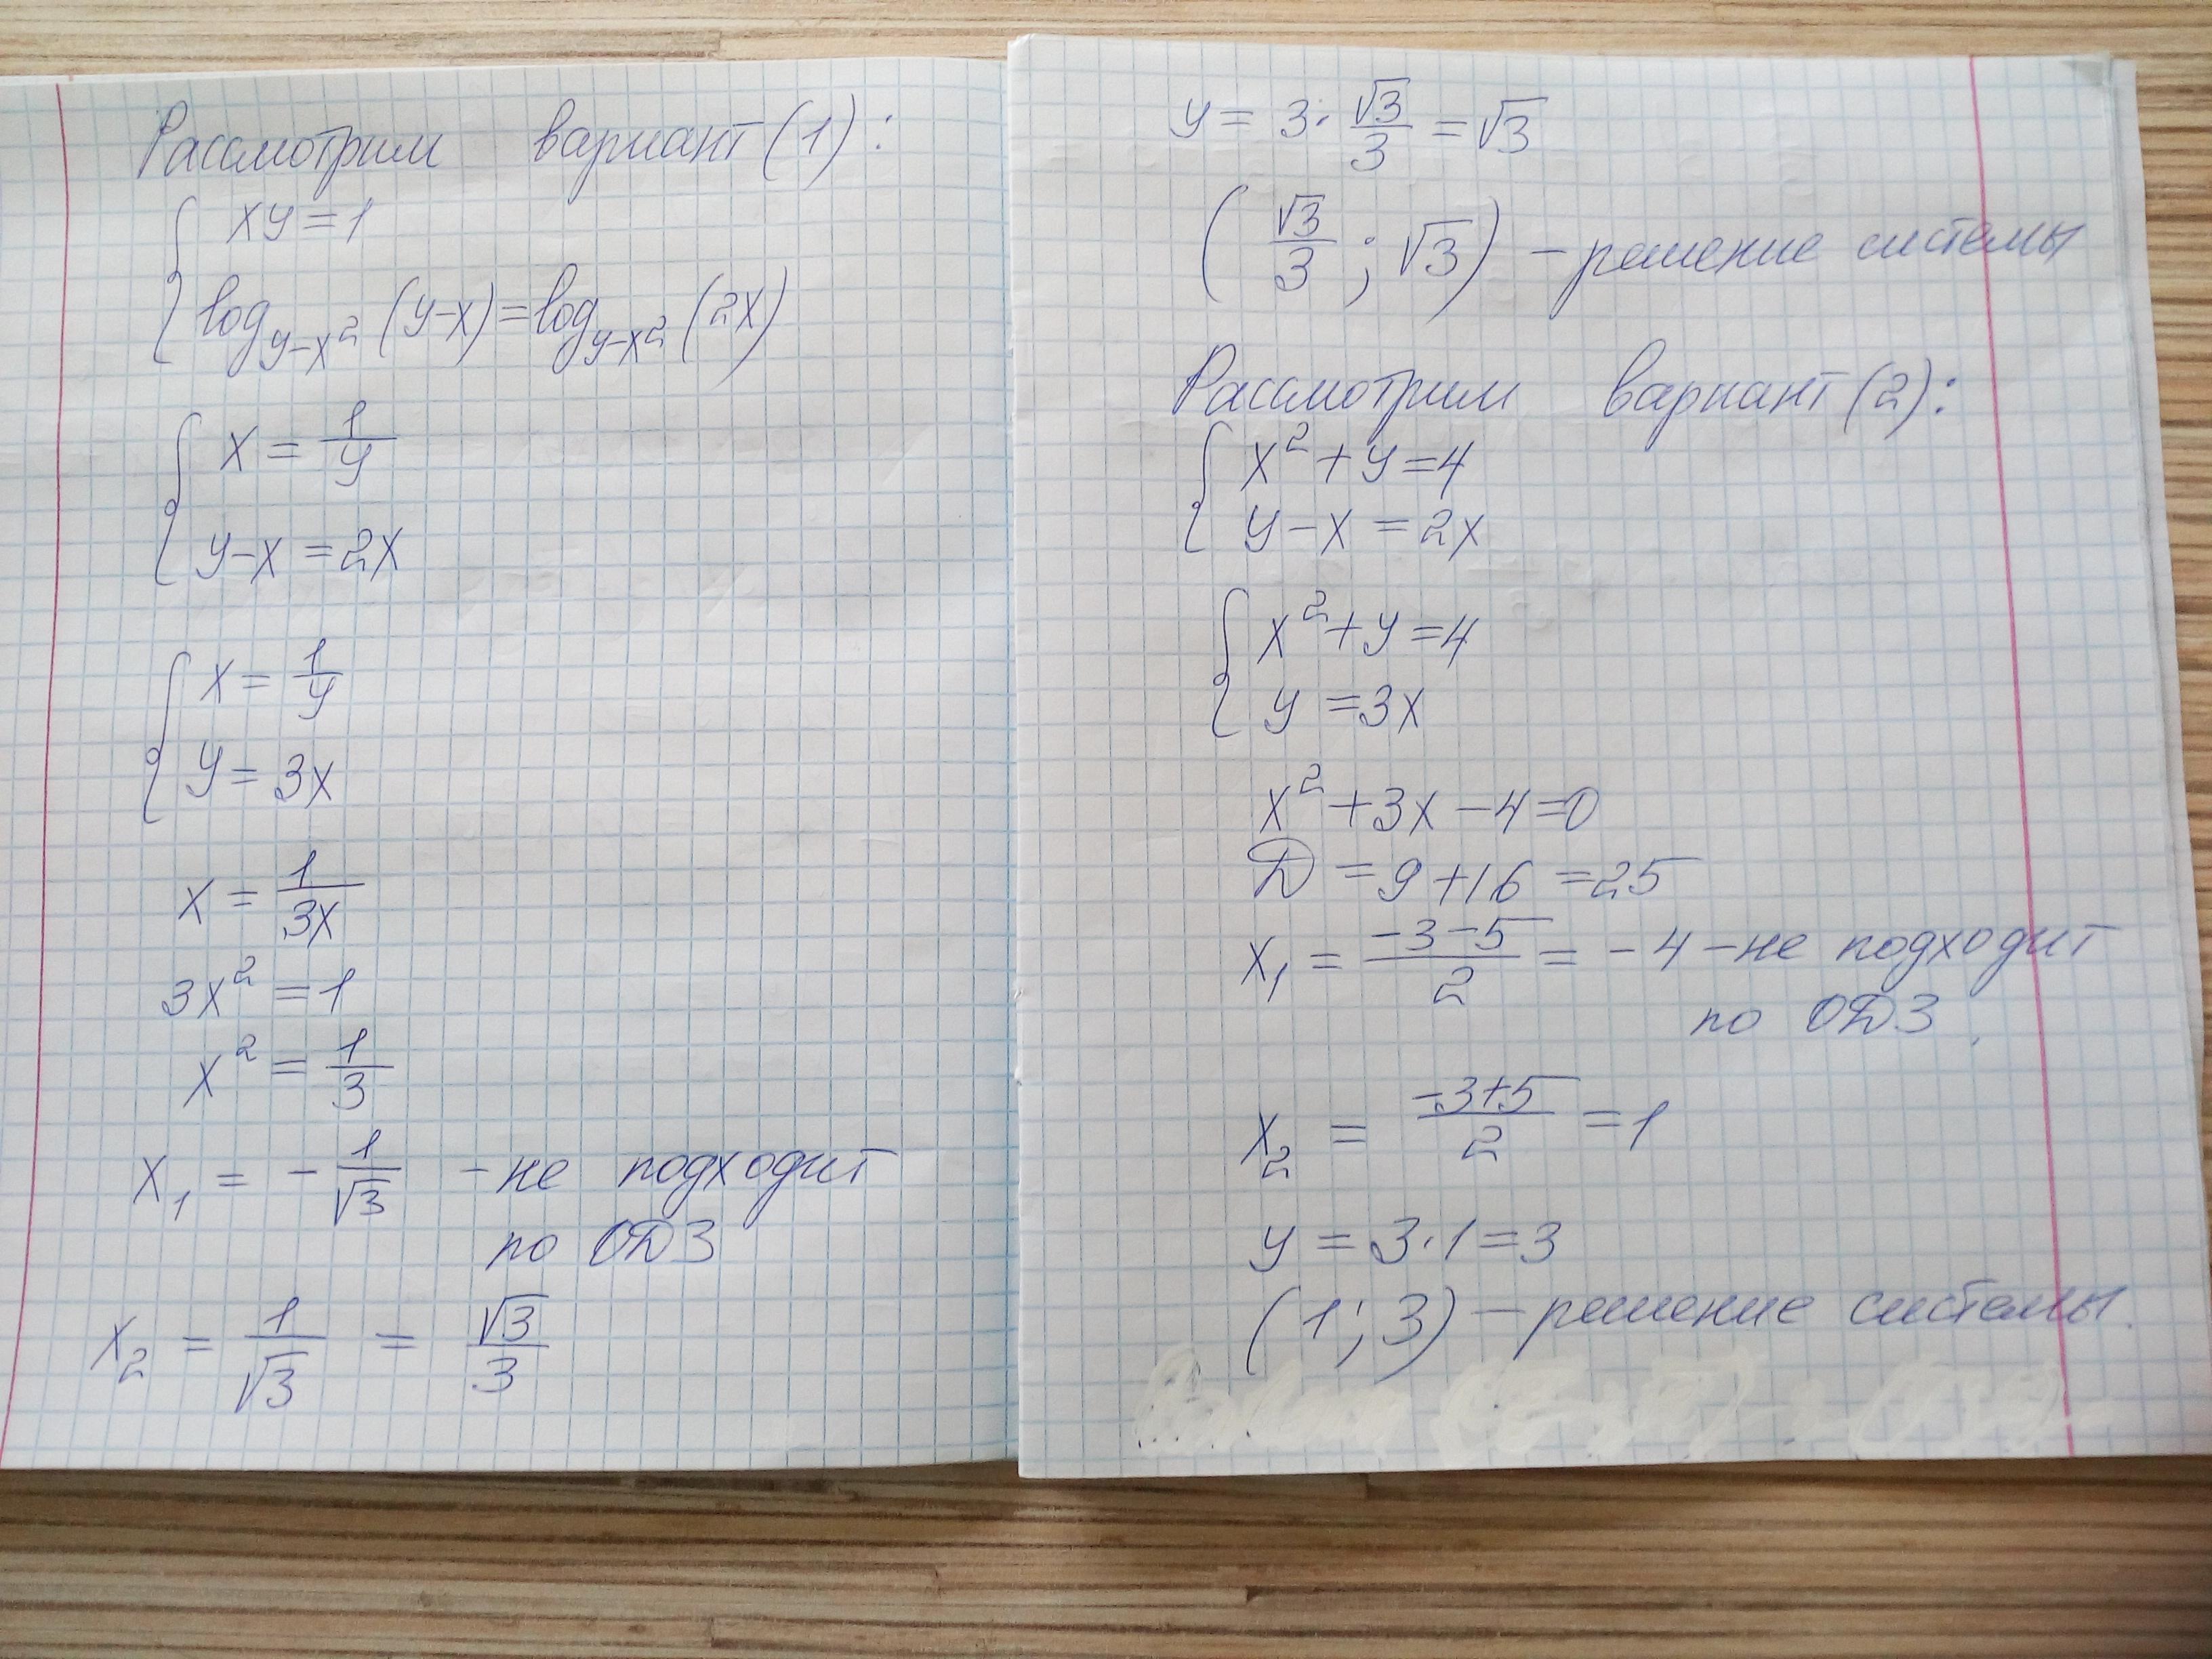 Рассмотрим вариант (1):
xy = 1
log_{y-x^2} (y-x) = log_{y-x^2} (2x)
x = 1/y
y-x = 2x
x = 1/y
y = 3x
x = 1/3x
3x^2 = 1
x^2 = 1/3
x_1 = -1/√3 - не подходит
по ОДЗ
x_2 = 1/√3 = √3/3
y = 3·√3/3 = √3
(√3/3; √3) - решение системы
Рассмотрим вариант (2):
x^2 + y = 4
y - x = 2x
x^2 + y = 4
y = 3x
x^2 + 3x - 4 = 0
D = 9 + 16 = 25
x_1 = -3-5/2 = -4 - не подходит
по ОДЗ
x_2 = -3+5/2 = 1
y = 3·1 = 3
(1; 3) - решение системы.